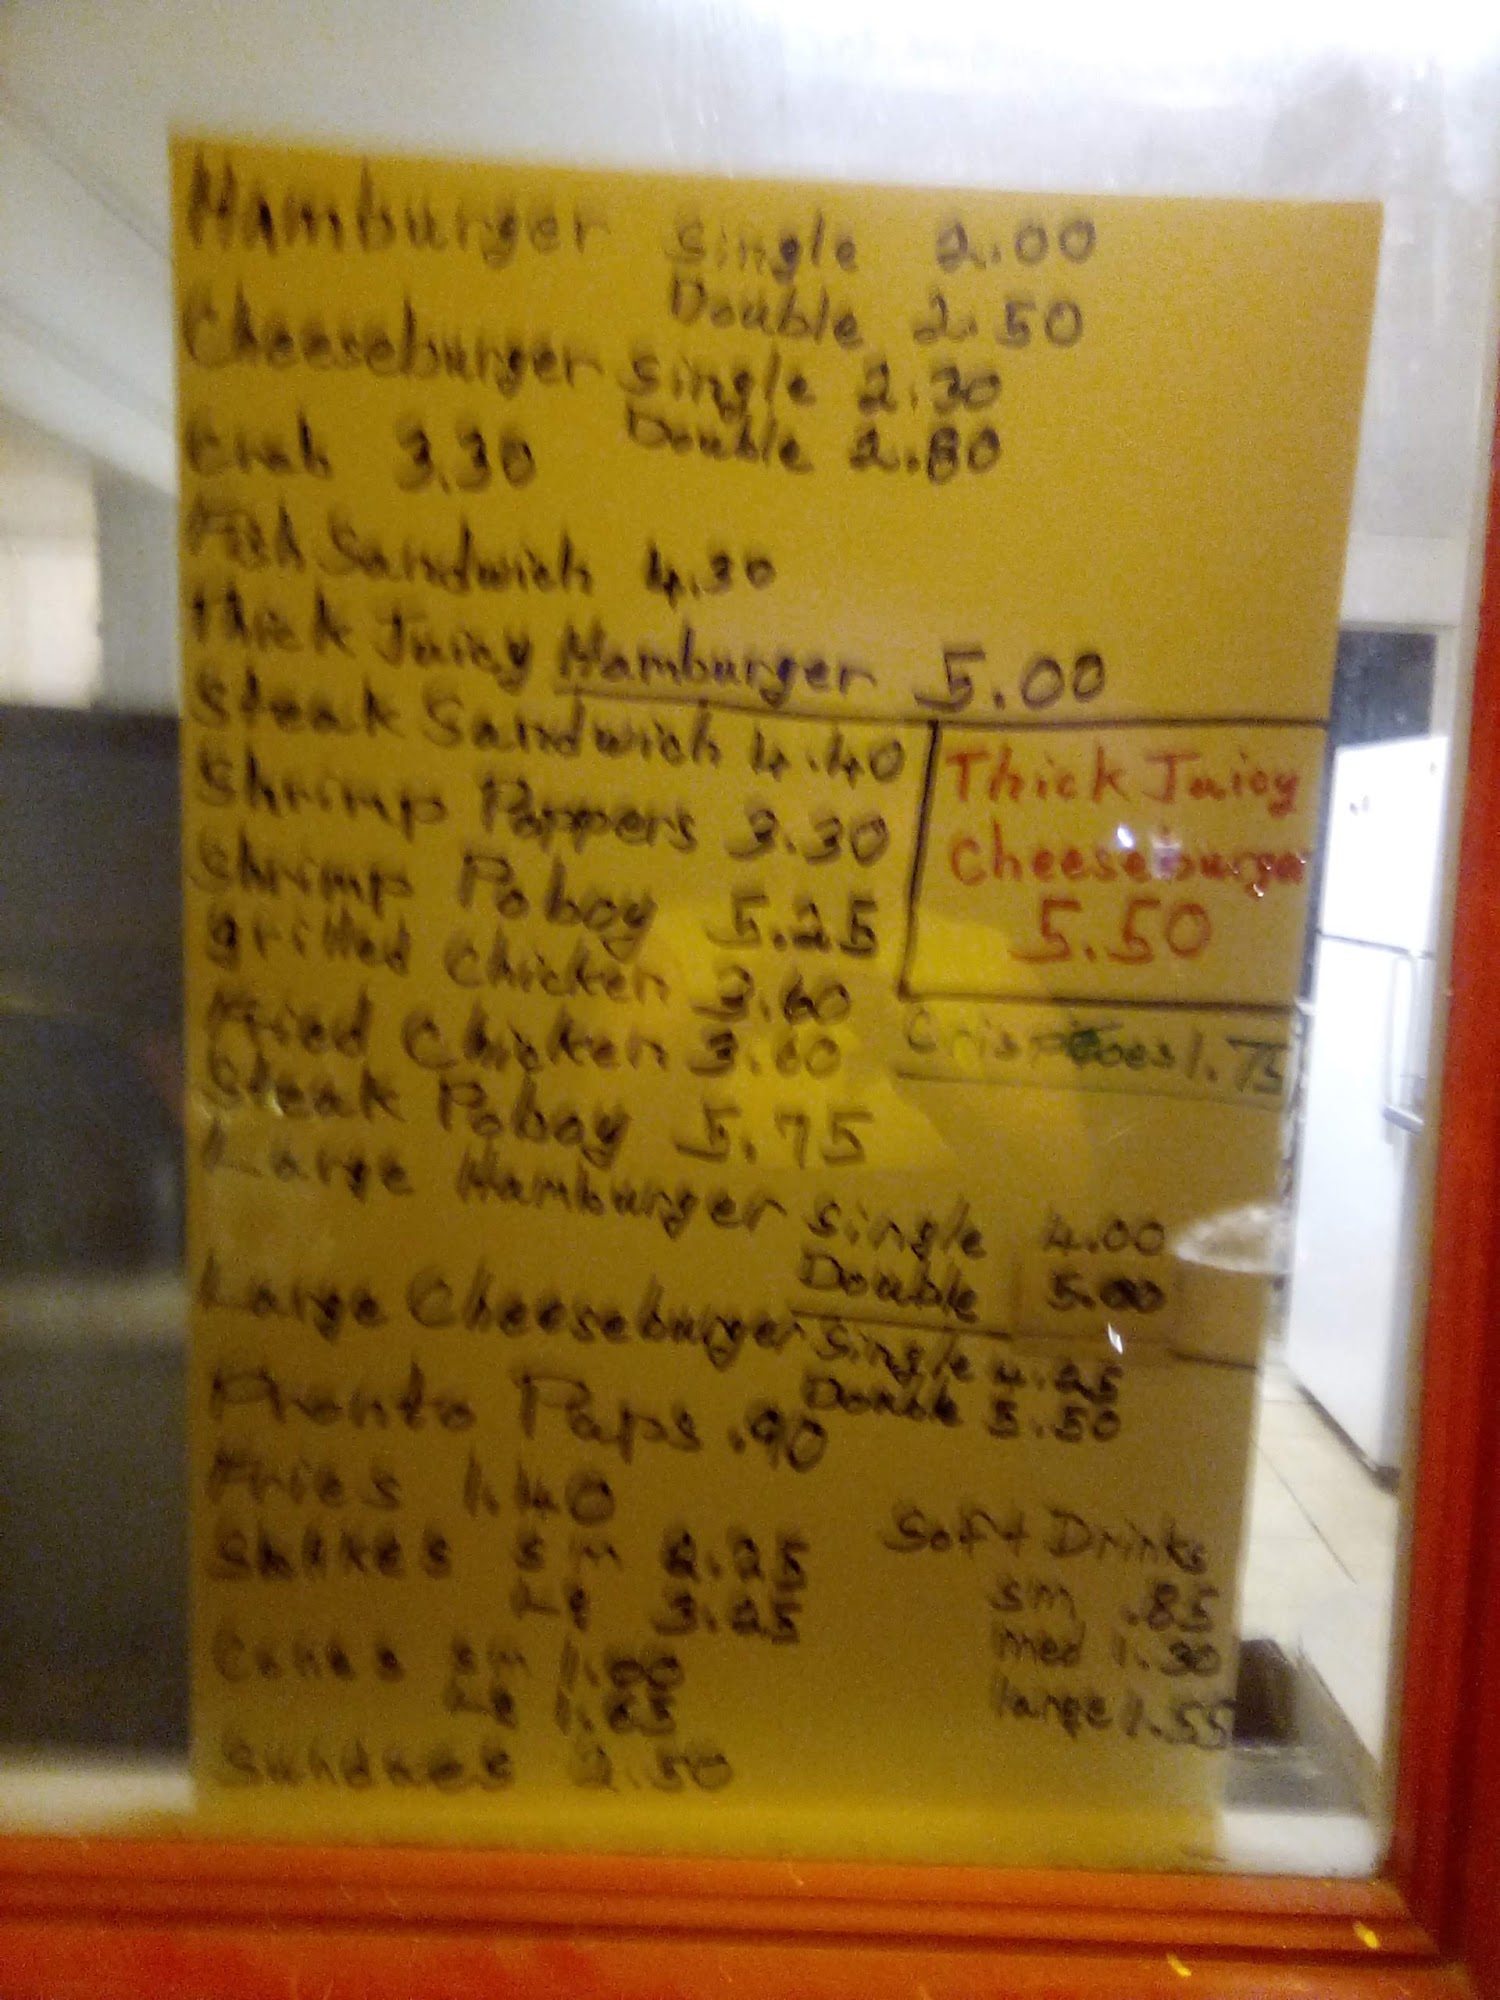 Hamburger single 2.00
Double 2.50
Cheeseburger single 2.30
Double 2.80
Crab 3.30
Fish Sandwich 4.30
Thick Juicy Hamburger 5.00
Steak Sandwich 4.40
Thick Juicy
Cheeseburger
5.50
Shrimp Poppers 3.30
Shrimp Poboy 5.25
grilled Chicken 3.60
Fried Chicken 3.60
Crisptoes 1.75
Steak Poboy 5.75
Large Hamburger single 4.00
Double 5.00
Large Cheeseburger Single 4.25
Double 5.50
Pronto Paps .90
Fries 1.40
Shakes sm 2.25
Lg 3.25
Soft Drinks
sm .85
med 1.30
large 1.55
Cones sm 1.00
Lg 1.65
Sundaes 2.50